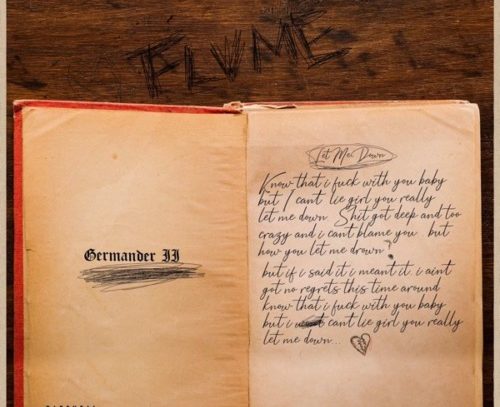 FLVME
Germander II
Let Me Down
Know that i fuck with you baby
but I cant lie girl you really
let me down. Shit got deep and too
crazy and i cant blame you.. but
how you let me drown?
but if i said it i meant it i aint
got no regrets this time around
know that i fuck with you baby
but i cant lie girl you really
let me down...